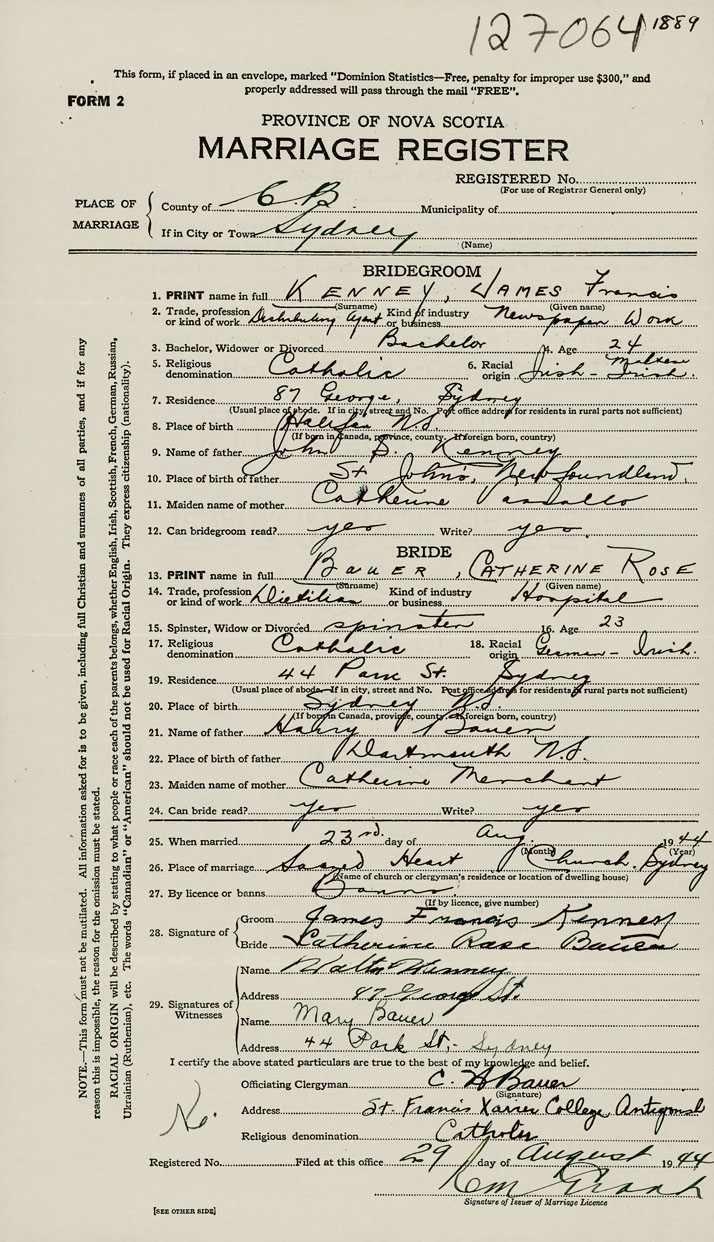 127064 1889
This form, if placed in an envelope, marked "Dominion Statistics—Free, penalty for improper use $300," and
properly addressed will pass through the mail "FREE".
FORM 2
PROVINCE OF NOVA SCOTIA
MARRIAGE REGISTER
REGISTERED No.
(For use of Registrar General only)
PLACE OF MARRIAGE
County of C. B. Municipality of
If in City or Town Sydney
(Name)
BRIDEGROOM
1. PRINT name in full KENNEY, JAMES Francis
(Surname) (Given name)
2. Trade, profession or kind of work Distributing Agent Kind of industry or business Newspaper Work
3. Bachelor, Widower or Divorced Bachelor 4. Age 24
5. Religious denomination Catholic 6. Racial origin Irish - Maltese Irish.
7. Residence 87 George, Sydney
(Usual place of abode. If in city, street and No. Post office address for residents in rural parts not sufficient)
8. Place of birth Halifax N.S.
(If born in Canada, province, county. If foreign born, country)
9. Name of father John S. Kenney
10. Place of birth of father St John's, Newfoundland,
11. Maiden name of mother Catherine Vassallo
12. Can bridegroom read? yes Write? yes.
BRIDE
13. PRINT name in full BAUER, CATHERINE ROSE
(Surname) (Given name)
14. Trade, profession or kind of work Dietitian Kind of industry or business Hospital
15. Spinster, Widow or Divorced spinster 16. Age 23
17. Religious denomination Catholic 18. Racial origin German - Irish.
19. Residence 44 Park St. Sydney
(Usual place of abode. If in city, street and No. Post office address for residents in rural parts not sufficient)
20. Place of birth Sydney N.S.
(If born in Canada, province, county. If foreign born, country)
21. Name of father Harry Bauer
22. Place of birth of father Dartmouth N.S.
23. Maiden name of mother Catherine Merchant
24. Can bride read? yes Write? yes
25. When married 23rd. day of Aug. 1944
(Month) (Year)
26. Place of marriage Sacred Heart Church. Sydney
(Name of church or clergyman's residence or location of dwelling house)
27. By licence or banns Banns.
(If by licence, give number)
28. Signature of
Groom James Francis Kenney
Bride Catherine Rose Bauer
29. Signatures of Witnesses
Name Walter Kenney
Address 87 George St.
Name Mary Bauer
Address 44 Park St, - Sydney
I certify the above stated particulars are true to the best of my knowledge and belief.
Officiating Clergyman C. H Bauer
(Signature)
Address St. Francis Xavier College, Antigonish
Religious denomination Catholic
Registered No. Filed at this office 29 day of August 1944
Signature of Issuer of Marriage Licence
[SEE OTHER SIDE]
NOTE.—This form must not be mutilated. All information asked for is to be given, including full Christian and surnames of all parties, and if for any
reason this is impossible, the reason for the omission must be stated.
RACIAL ORIGIN will be described by stating to what people or race each of the parents belongs, whether English, Irish, Scottish, French, German, Russian,
Ukrainian (Ruthenian), etc. The words "Canadian" or "American" should not be used for Racial Origin. They express citizenship (nationality).